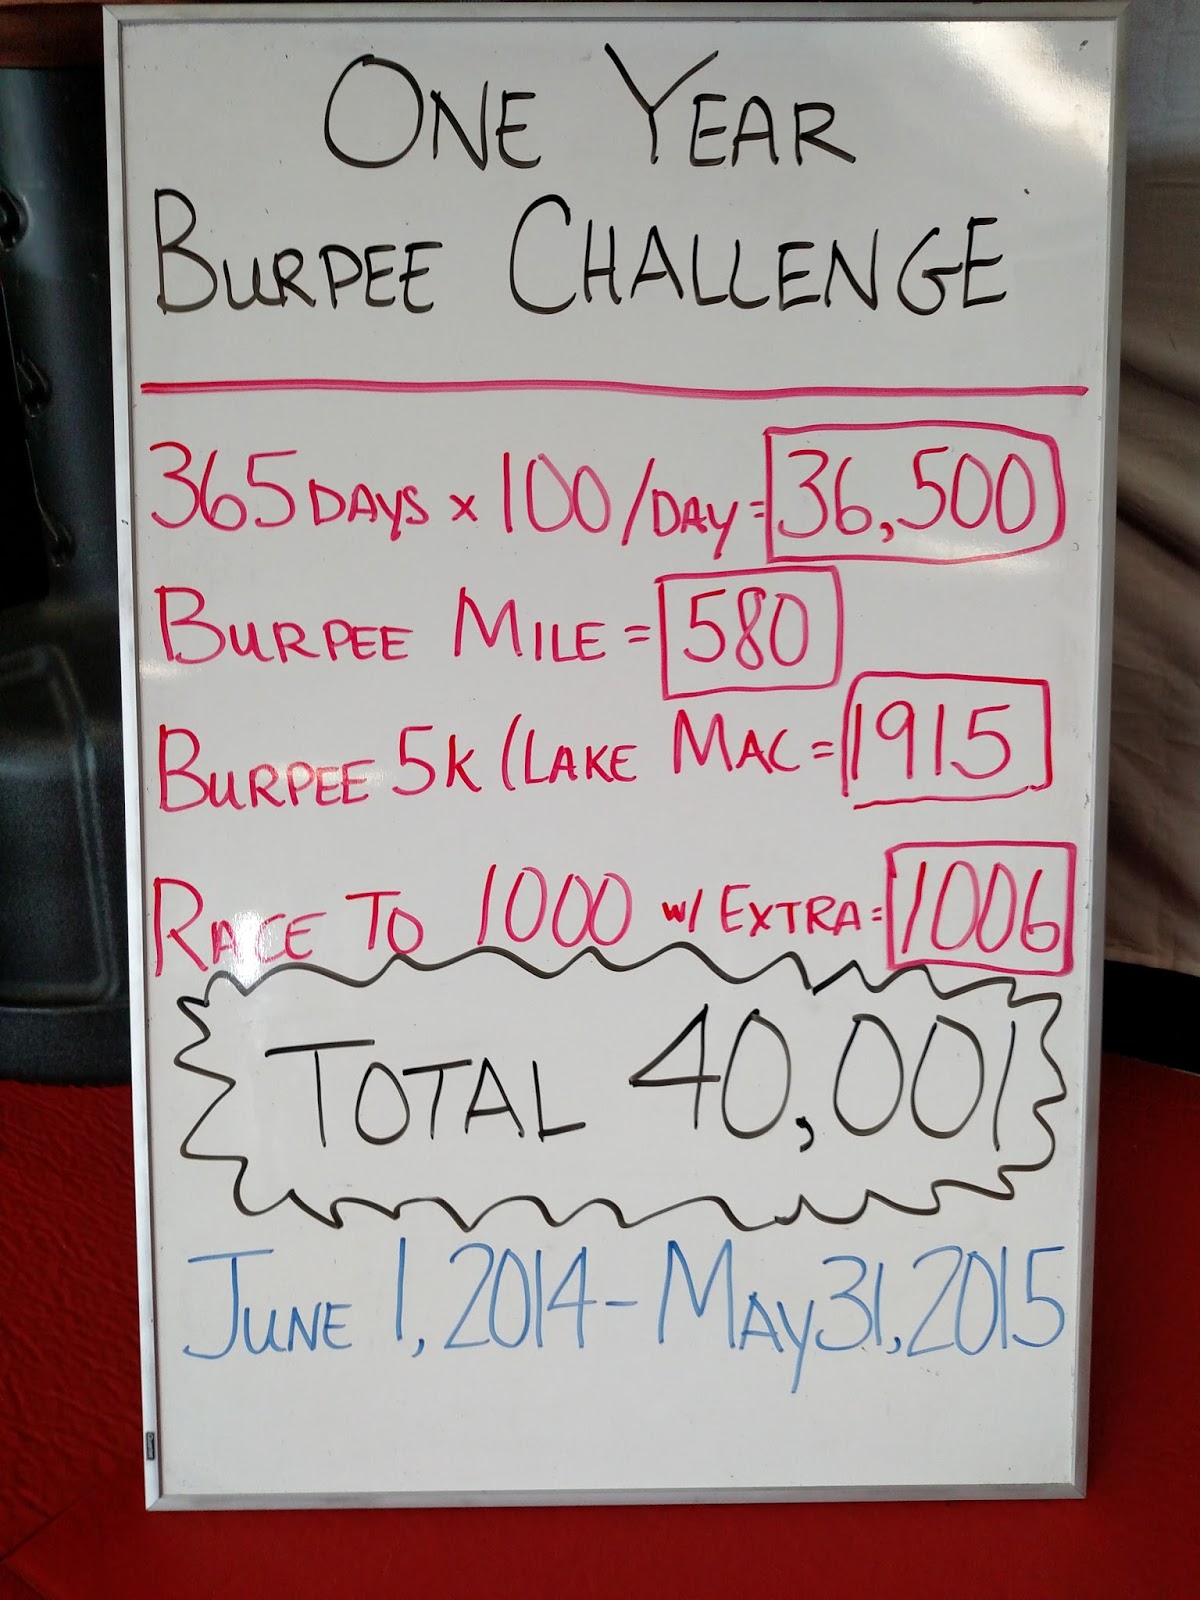 ONE YEAR
BURPEE CHALLENGE
365 DAYS x 100/DAY = 36,500
BURPEE MILE = 580
BURPEE 5K (LAKE MAC = 1915
RACE TO 1000 w/ EXTRA = 1006
TOTAL 40,001
JUNE 1, 2014 - MAY 31, 2015